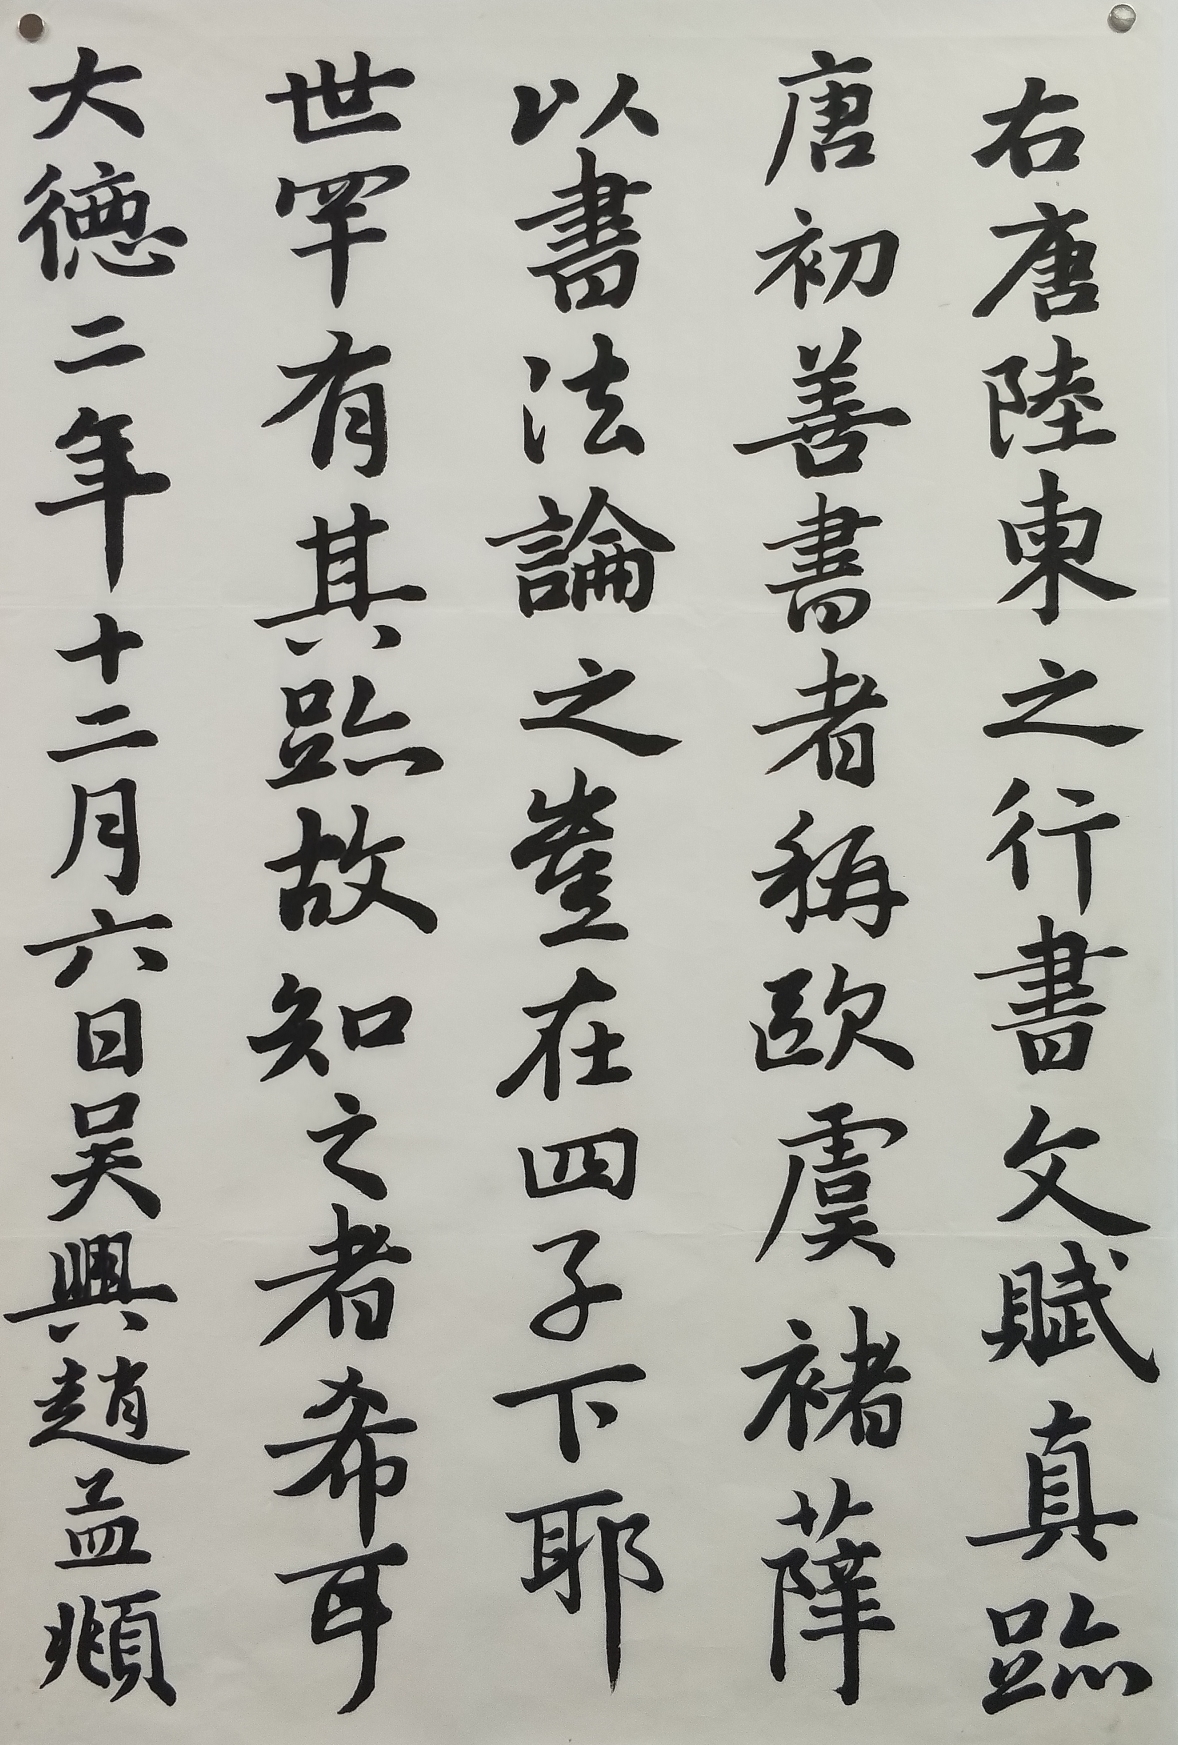 右唐陸柬之行書文賦真跡
唐初善書者稱歐虞褚薛
以書法論之豈在四子下耶
世罕有其跡故知之者希耳
大德二年十二月六日吳興趙孟頫